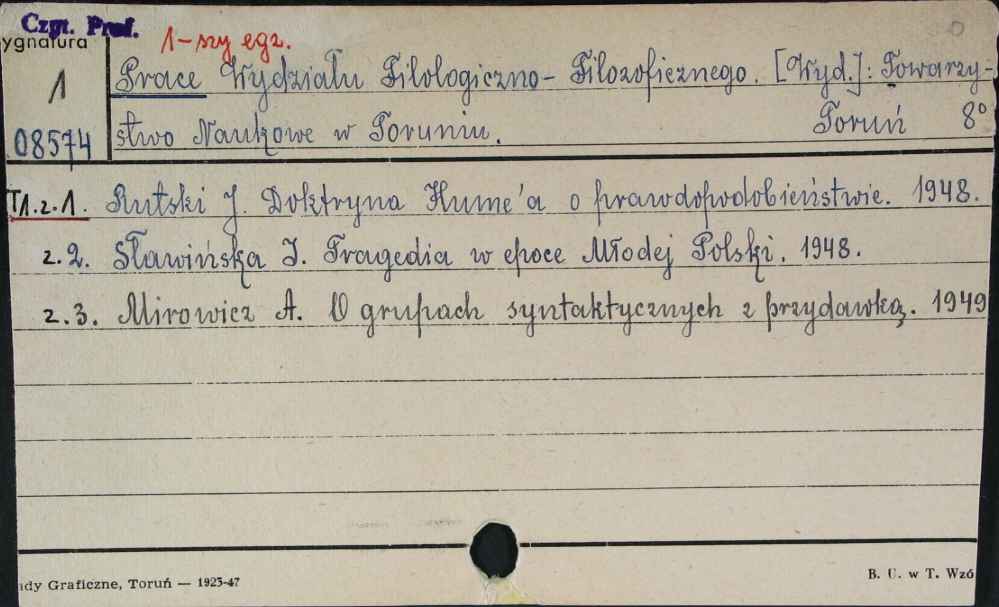 Czyt. Prof.
ygnatura
1-szy egz.
1
Prace Wydziału Filologiczno-Filozoficznego. [Wyd.]: Towarzy-
08574
stwo Naukowe w Toruniu. Toruń 8°
T1.z.1. Rutski J. Doktryna Hume'a o prawdopodobieństwie. 1948.
z.2. Sławińska I. Tragedia w epoce Młodej Polski. 1948.
z.3. Mirowicz A. O grupach syntaktycznych z przydawką. 1949
ady Graficzne, Toruń — 1923-47
B. U. w T. Wzó